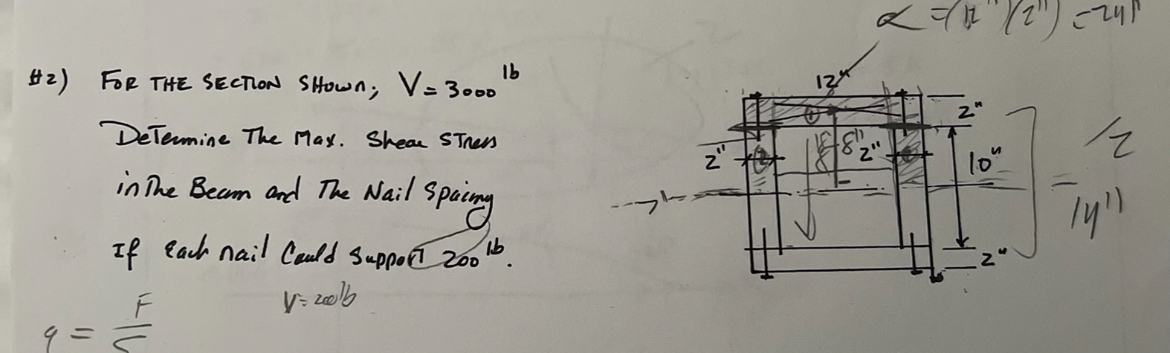 α = (12") (2") = 24"
#2) FOR THE SECTION SHOWN; V = 3000 lb
Determine The Max. Shear Stress
in The Beam and The Nail Spacing
If Each nail Could Support 200 lb.
V = 200 lb
q = F
12"
2"
2"
8"
2"
10"
14"
2"